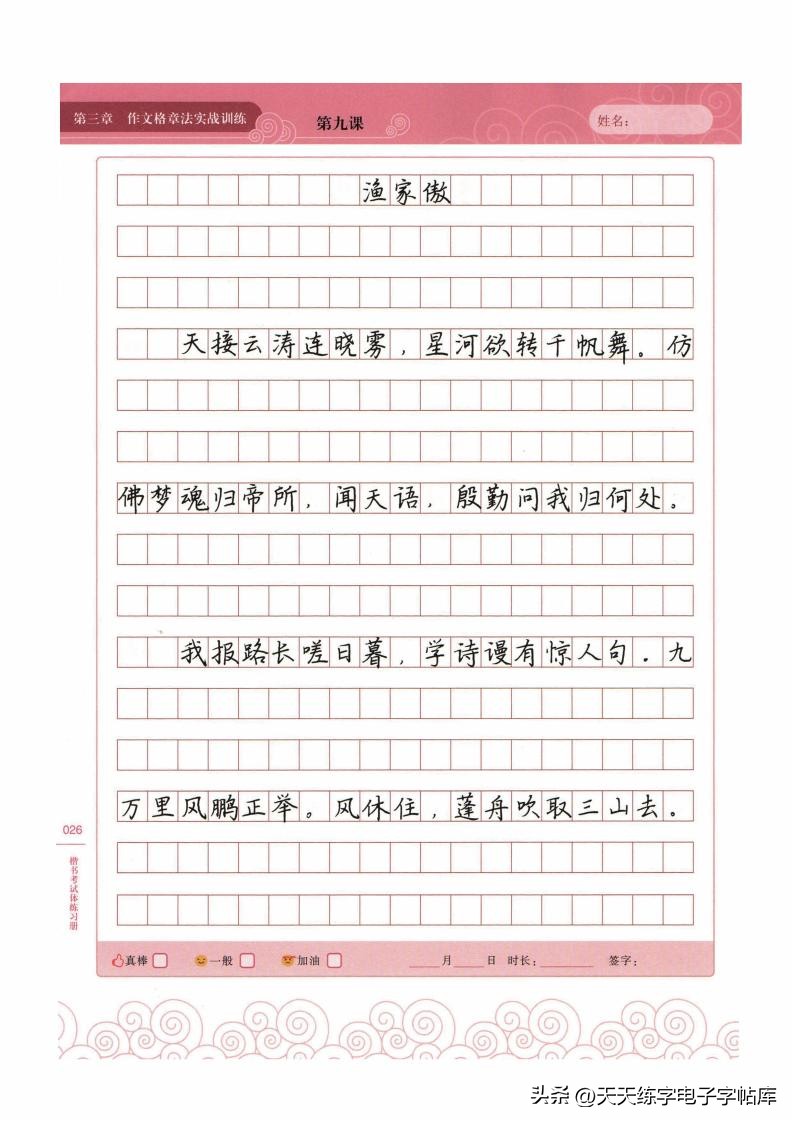 第三章 作文格章法实战训练
第九课
姓名：
渔家傲
天接云涛连晓雾，星河欲转千帆舞。仿
佛梦魂归帝所，闻天语，殷勤问我归何处。
我报路长嗟日暮，学诗谩有惊人句。九
万里风鹏正举。风休住，蓬舟吹取三山去。
026
楷书考试体练习册
真棒 一般 加油 ____月____日 时长：________ 签字：
头条 @天天练字电子字帖库